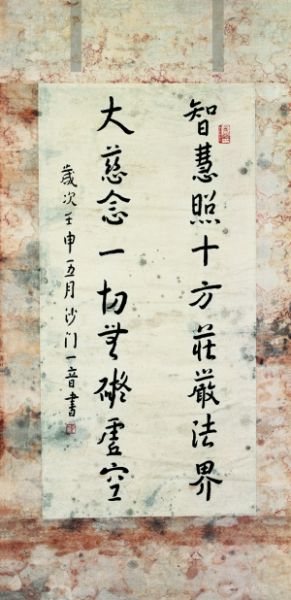 智慧照十方莊嚴法界
大慈念一切无礙虛空
歲次壬申五月沙门一音書